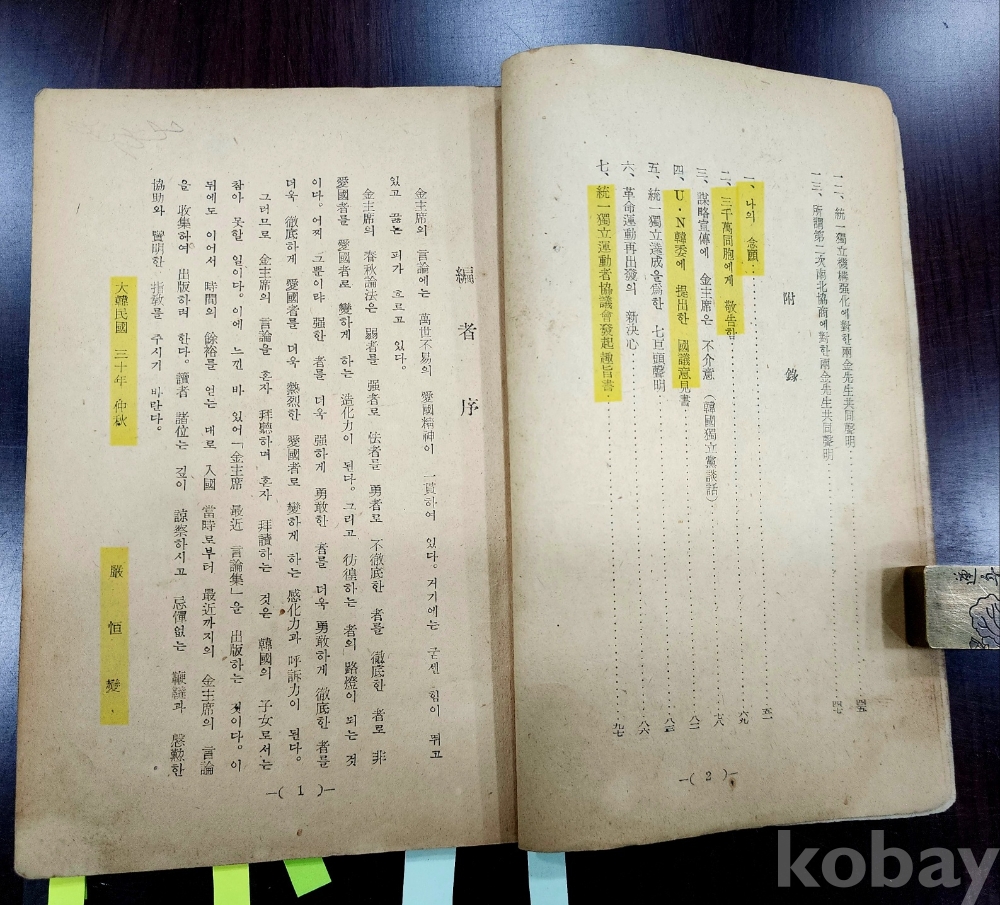 一二、統一獨立機構强化에對한兩金先生共同聲明 四五
一三、所謂第二次南北協商에對한兩金先生共同聲明 四七
附錄
一、나의 念願 五一
二、三千萬同胞에게 敬告함 六九
三、謀略宣傳에 金主席은 不介意（韓國獨立黨談話） 七八
四、U·N韓委에 提出한 國議意見書 八二
五、統一獨立達成을爲한 七巨頭聲明 八五
六、革命運動再出發의 新決心 八六
七、統一獨立運動者協議會發起趣旨書 九七
—( 2 )—
編者序
金主席의 言論에는 萬世不易의 愛國精神이 一貫하여 있다. 거기에는 굳센 힘이 뛰고
있고 끓는 피가 흐르고 있다.
金主席의 春秋論法은 弱者를 强者로 怯者를 勇者로 不徹底한 者를 徹底한 者로 非
愛國者를 愛國者로 變하게 하는 造化力이 된다. 그리고 彷徨하는 者의 路燈이 되는 것
이다. 어찌 그뿐이랴 强한 者를 더욱 强하게 勇敢한 者를 더욱 勇敢하게 徹底한 者를
더욱 徹底하게 愛國者를 더욱 熱烈한 愛國者로 變하게 하는 感化力과 呼訴力이 된다.
그러므로 金主席의 言論을 혼자 拜聽하며 혼자 拜讀하는 것은 韓國의 子女로서는
참아 못할 일이다. 이에 느낀 바 있어「金主席 最近 言論集」을 出版하는 것이다. 이
뒤에도 이어서 時間의 餘裕를 얻는 대로 入國 當時로부터 最近까지의 金主席의 言論
을 收集하여 出版하려 한다. 讀者 諸位는 깊이 諒察하시고 忌憚없는 鞭撻과 慇懃한
協助와 賢明한 指敎를 주시기 바란다。
大韓民國 三十年 仲秋
嚴恒燮
—( 1 )—
kobay